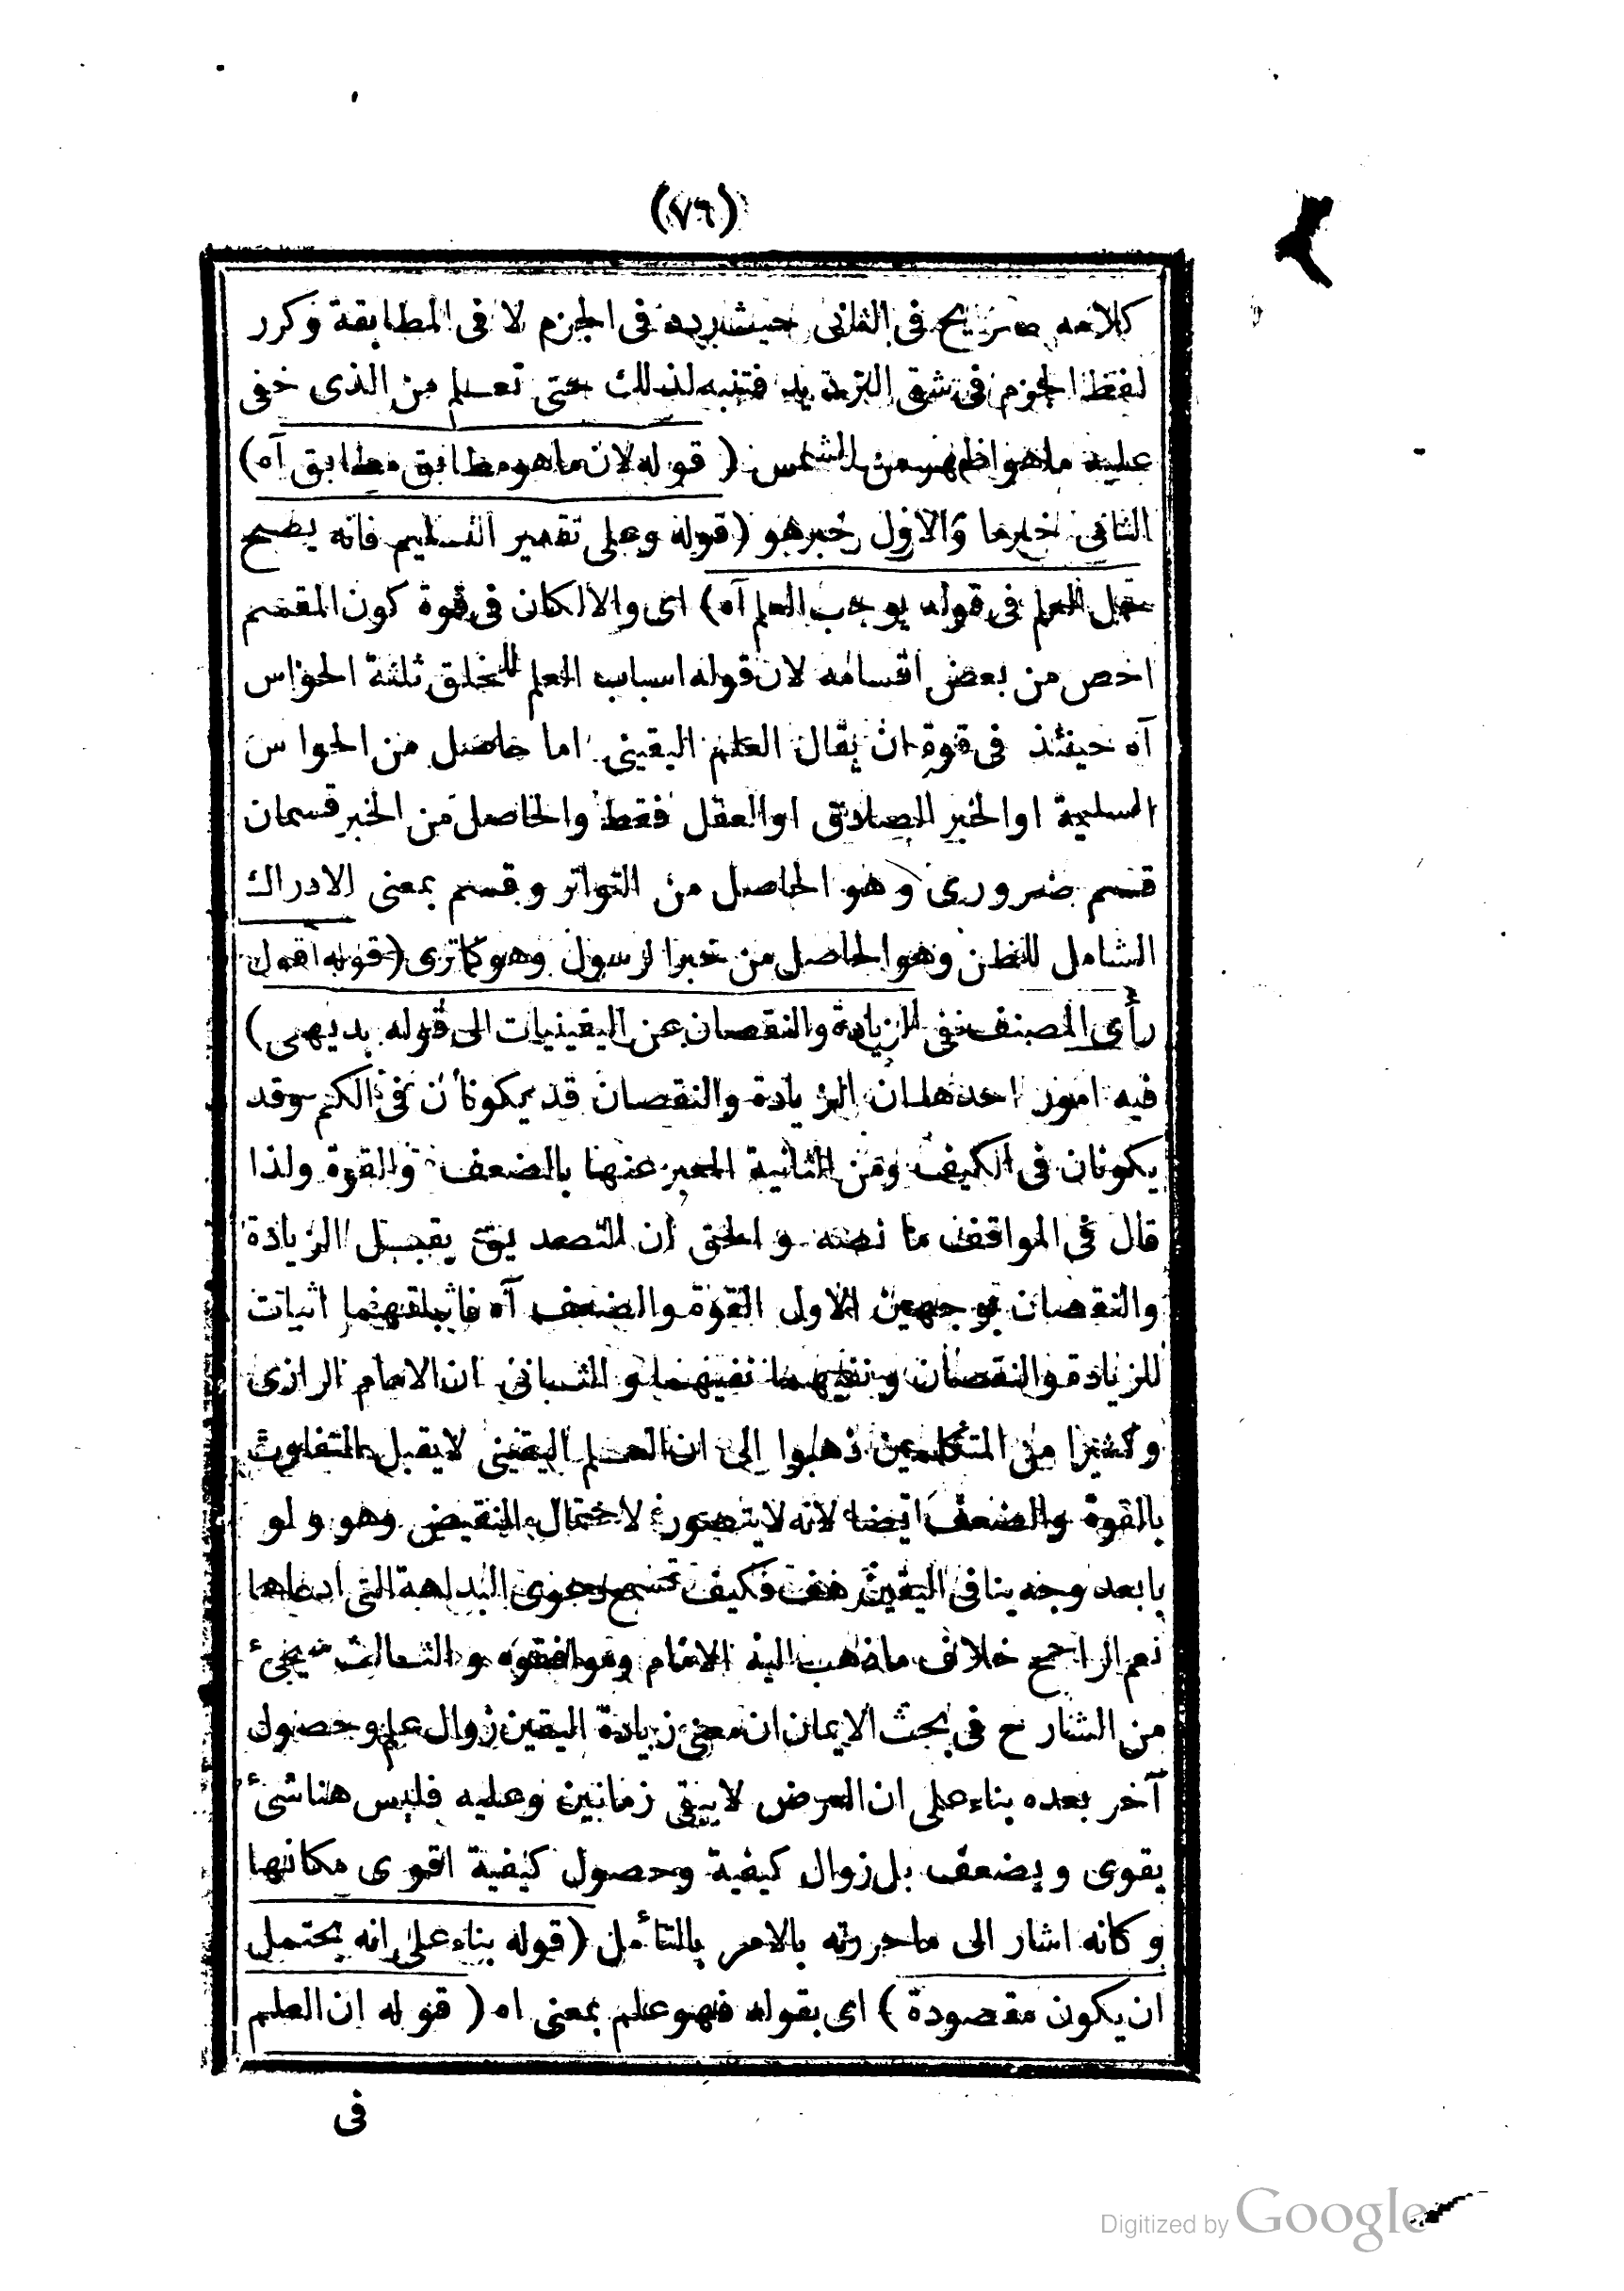 (٧٦)
كلامه صريح فى الثانى حيث ردد فى الجزم لا فى المطابقة وكرر
لفظ الجزم فى شق الترديد فتنبه لذلك حتى تعلم من الذى خفى
عليه ما هو اظهر من الشمس ( قوله لان ما هو مطابق مطابق آه )
الثانى خبر ما والاول خبر هو ( قوله وعلى تقدير التسليم فانه يصح
حمل العلم فى قوله يوجب العلم آه ) اى والا لكان فى قوة كون المقسم
اخص من بعض اقسامه لان قوله اسباب العلم للخلق ثلثة الحواس
آه حينئذ فى قوة ان يقال العلم اليقينى اما حاصل من الحواس
السليمة او الخبر الصادق او العقل فقط والحاصل من الخبر قسمان
قسم ضرورى وهو الحاصل من التواتر وقسم بمعنى الادراك
الشامل للظن وهو الحاصل من خبر الرسول وهو كما ترى ( قوله اقول
رأى المصنف نفى الزيادة والنقصان عن اليقينيات الى قوله بديهى )
فيه امور احدها ان الزيادة والنقصان قد يكونان فى الكم وقد
يكونان فى الكيف ومن الثانية المعبر عنها بالضعف والقوة ولذا
قال فى المواقف ما نصه والحق ان التصديق يقبل الزيادة
والنقصان بوجهين الاول القوة والضعف آه فاثباتهما اثبات
للزيادة والنقصان ونفيهما نفيهما والثانى ان الامام الرازى
وكثيرا من المتكلمين ذهبوا الى ان العلم اليقينى لا يقبل التفاوت
بالقوة والضعف ايضا لانه لا يتصور الا لاحتمال النقيض وهو ولو
بابعد وجه ينافى اليقين هف فكيف تسمع دعوى البداهة التى ادعاها
نعم الراجح خلاف ما ذهب اليه الامام وموافقوه والثالث سيجئ
من الشارح فى بحث الايمان ان معنى زيادة اليقين زوال علم وحصول
آخر بعده بناء على ان العرض لا يبقى زمانين وعليه فليس هنا شئ
يقوى ويضعف بل زوال كيفية وحصول كيفية اقوى مكانها
وكانه اشار الى ما حررته بالامر بالتأمل ( قوله بناء على انه يحتمل
ان يكون مقصودة ) اى بقوله فهو علم بمعنى اه ( قوله ان العلم
فى
Digitized by Google